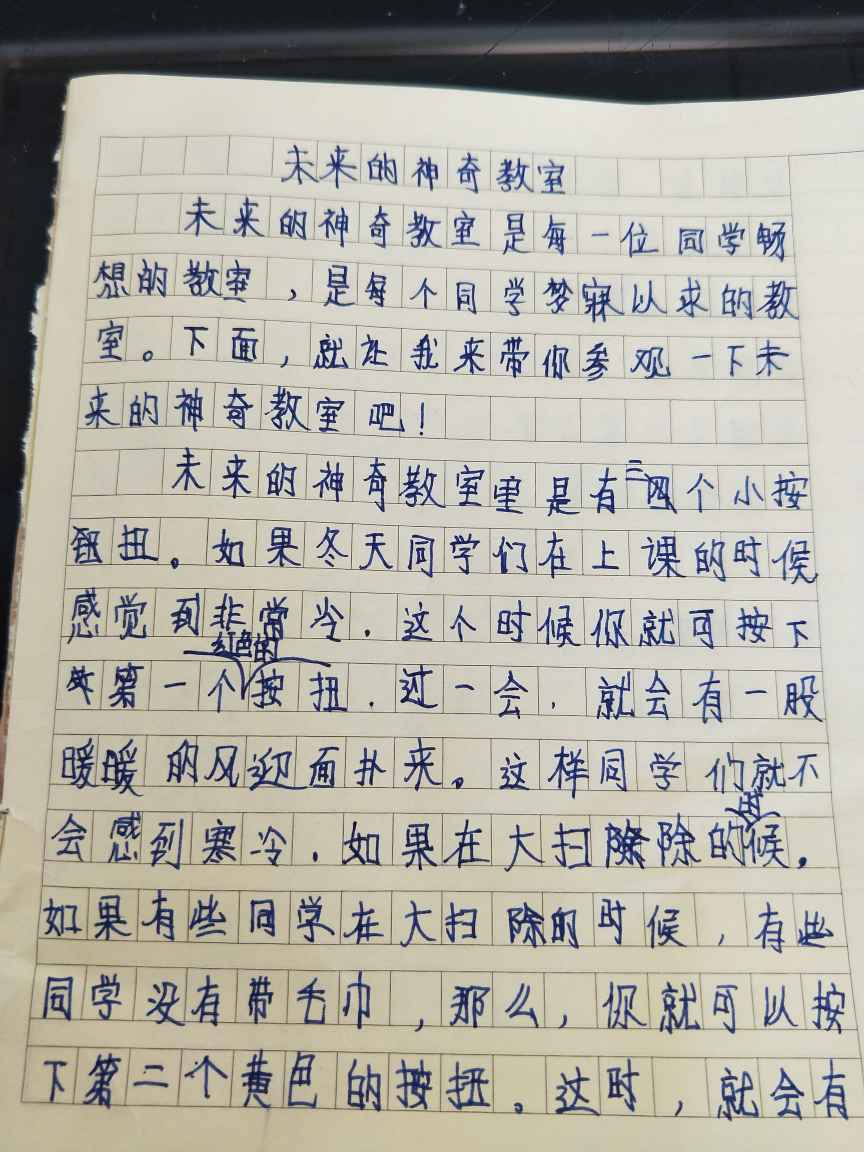 未来的神奇教室
未来的神奇教室是每一位同学畅
想的教室，是每个同学梦寐以求的教
室。下面，就让我来带你参观一下未
来的神奇教室吧！
未来的神奇教室里是有三个小按
扭。如果冬天同学们在上课的时候
感觉到非常冷．这个时候你就可按下
第一个红色的按扭．过一会．就会有一股
暖暖的风迎面扑来。这样同学们就不
会感到寒冷．如果在大扫除的时候，
如果有些同学在大扫除的时候，有些
同学没有带毛巾，那么，你就可以按
下第二个黄色的按扭。这时，就会有